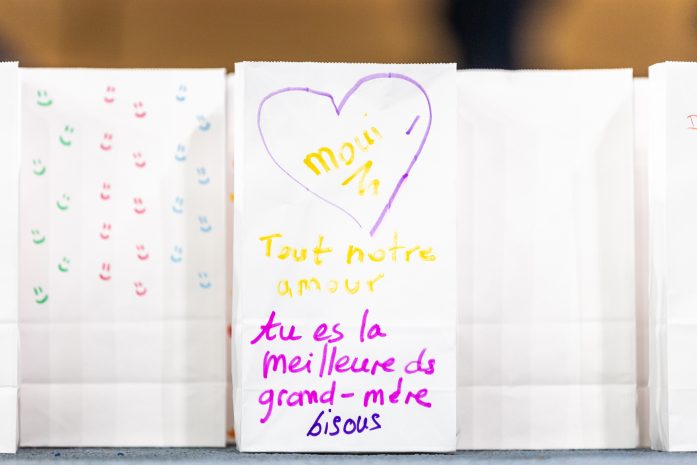 Tout notre
amour
tu es la
meilleure ds
grand-mère
bisous